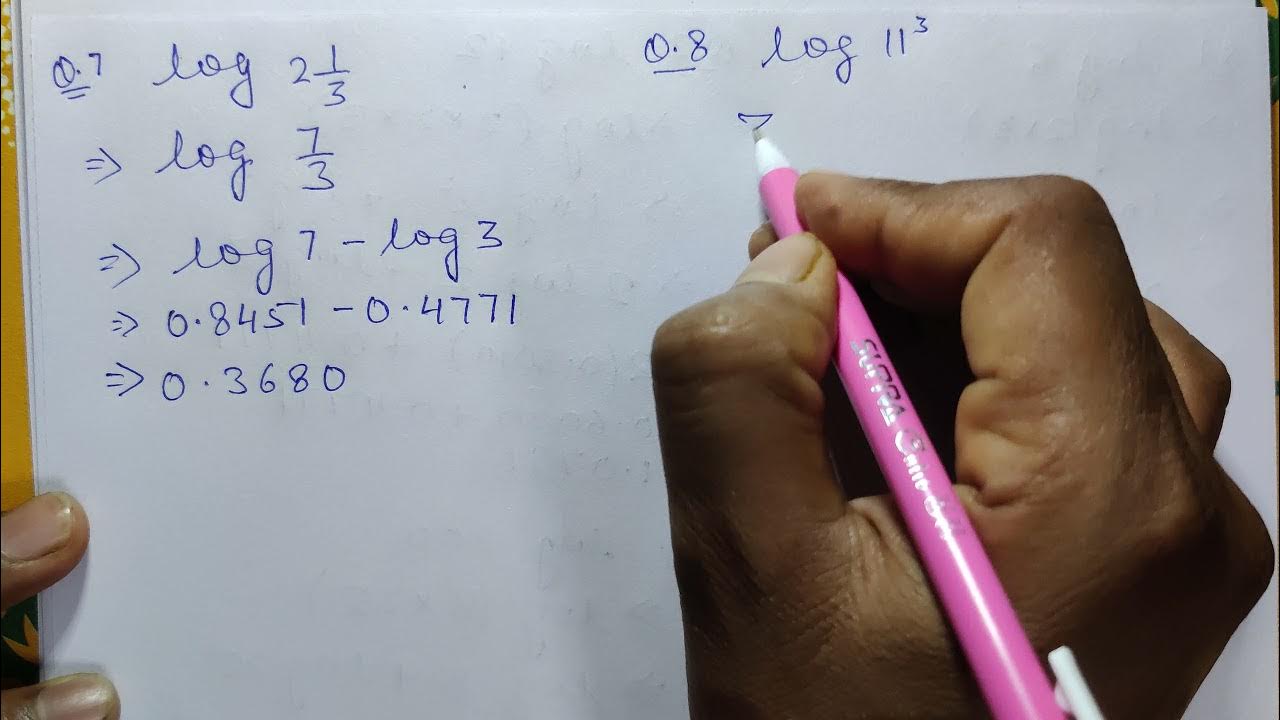 Q.7 log 2 1/3
⇒ log 7/3
⇒ log 7 − log 3
⇒ 0.8451 − 0.4771
⇒ 0.3680
Q.8 log 11³
SUPRA